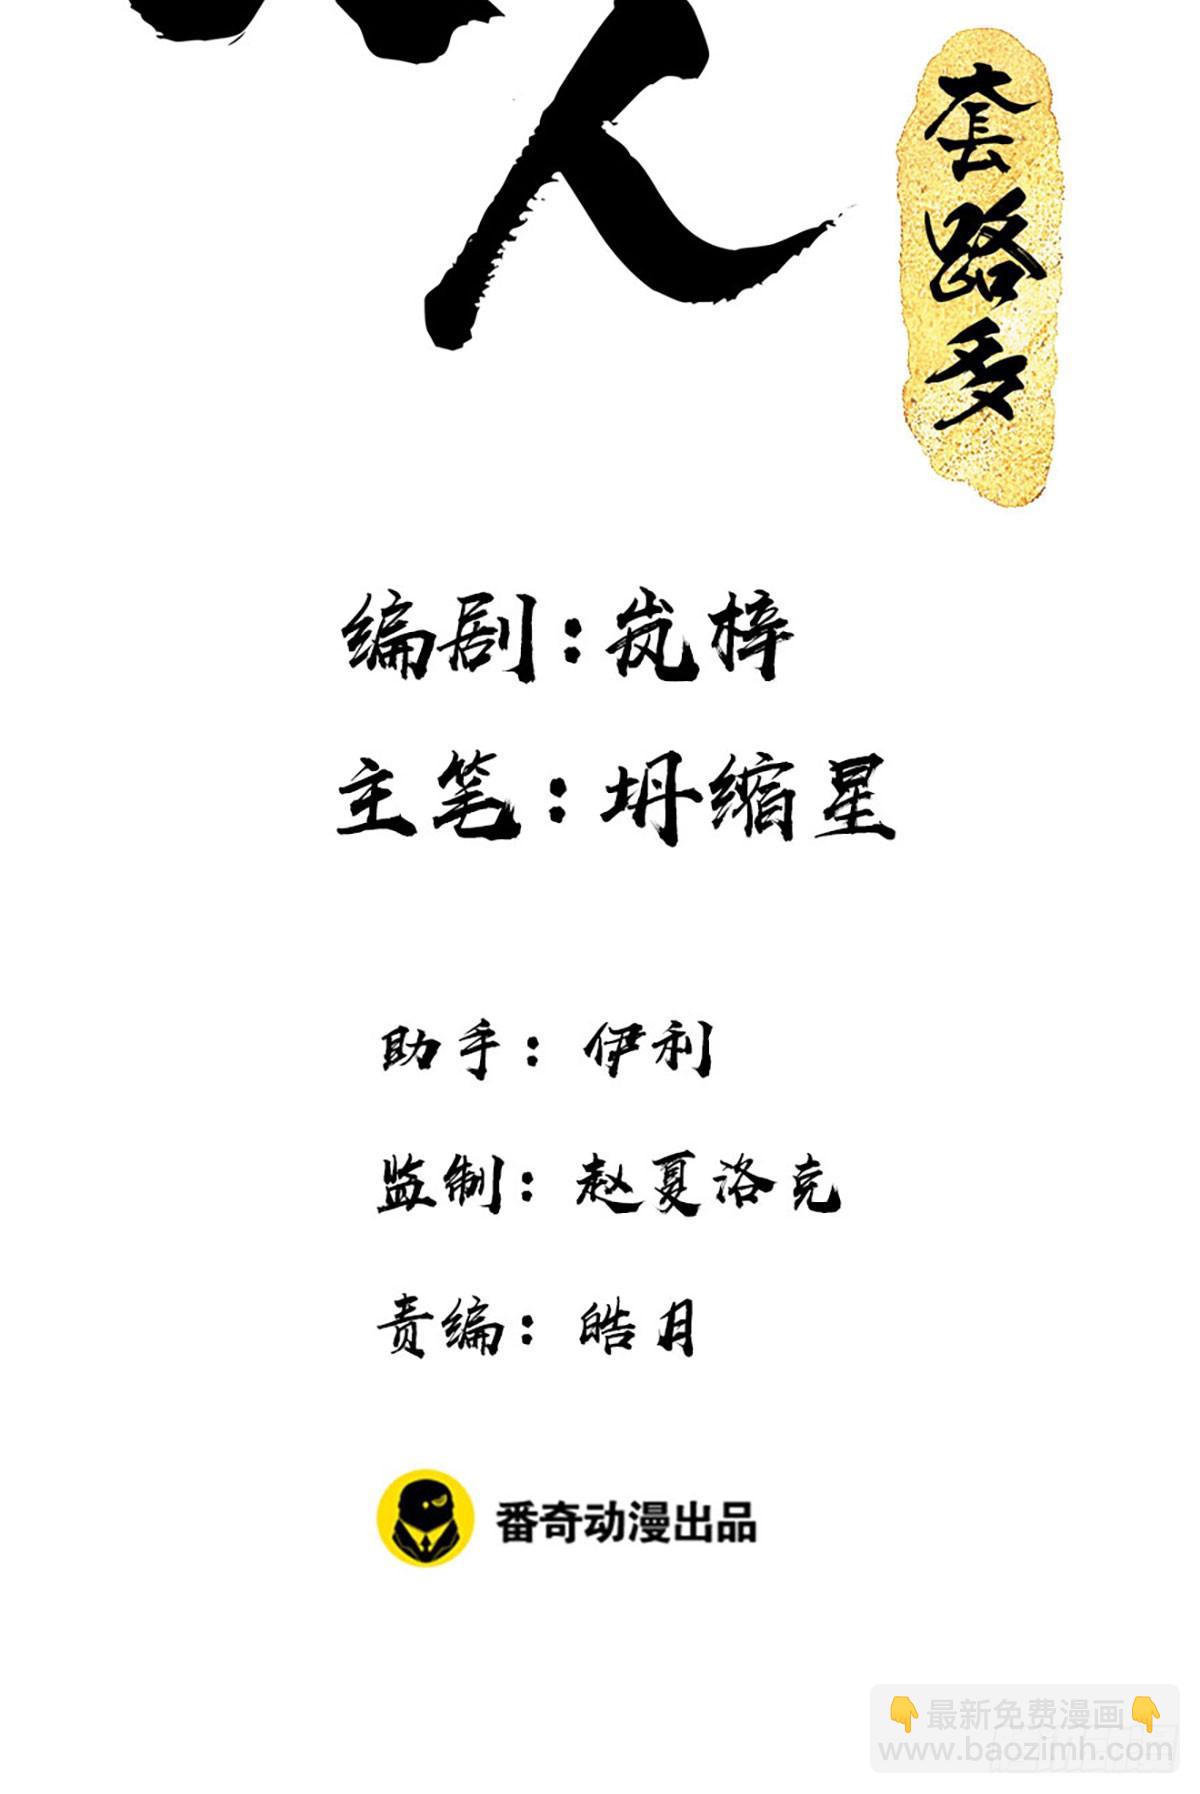 人
套路多
编剧：岚梓
主笔：坍缩星
助手：伊利
监制：赵夏洛克
责编：皓月
番奇动漫出品
👇最新免费漫画👇
www.baozimh.com